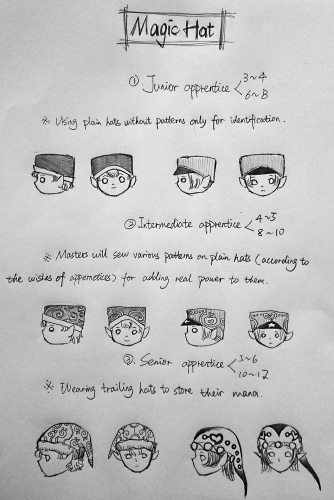 Magic Hat
① Junior apprentice < 3~4
6~8
※ Using plain hats without patterns only for identification.
② Intermediate apprentice < 4~5
8~10
※ Masters will sew various patterns on plain hats (according to
the wishes of apprentices) for adding real power to them.
③ Senior apprentice < 5~6
10~12
※ Wearing trailing hats to store their mana.